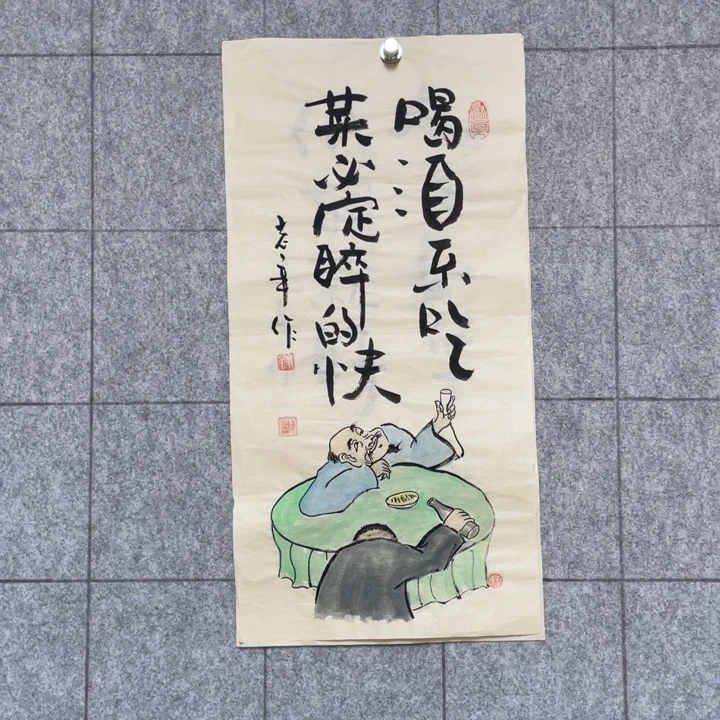 喝酒不吃
菜必定醉的快
作